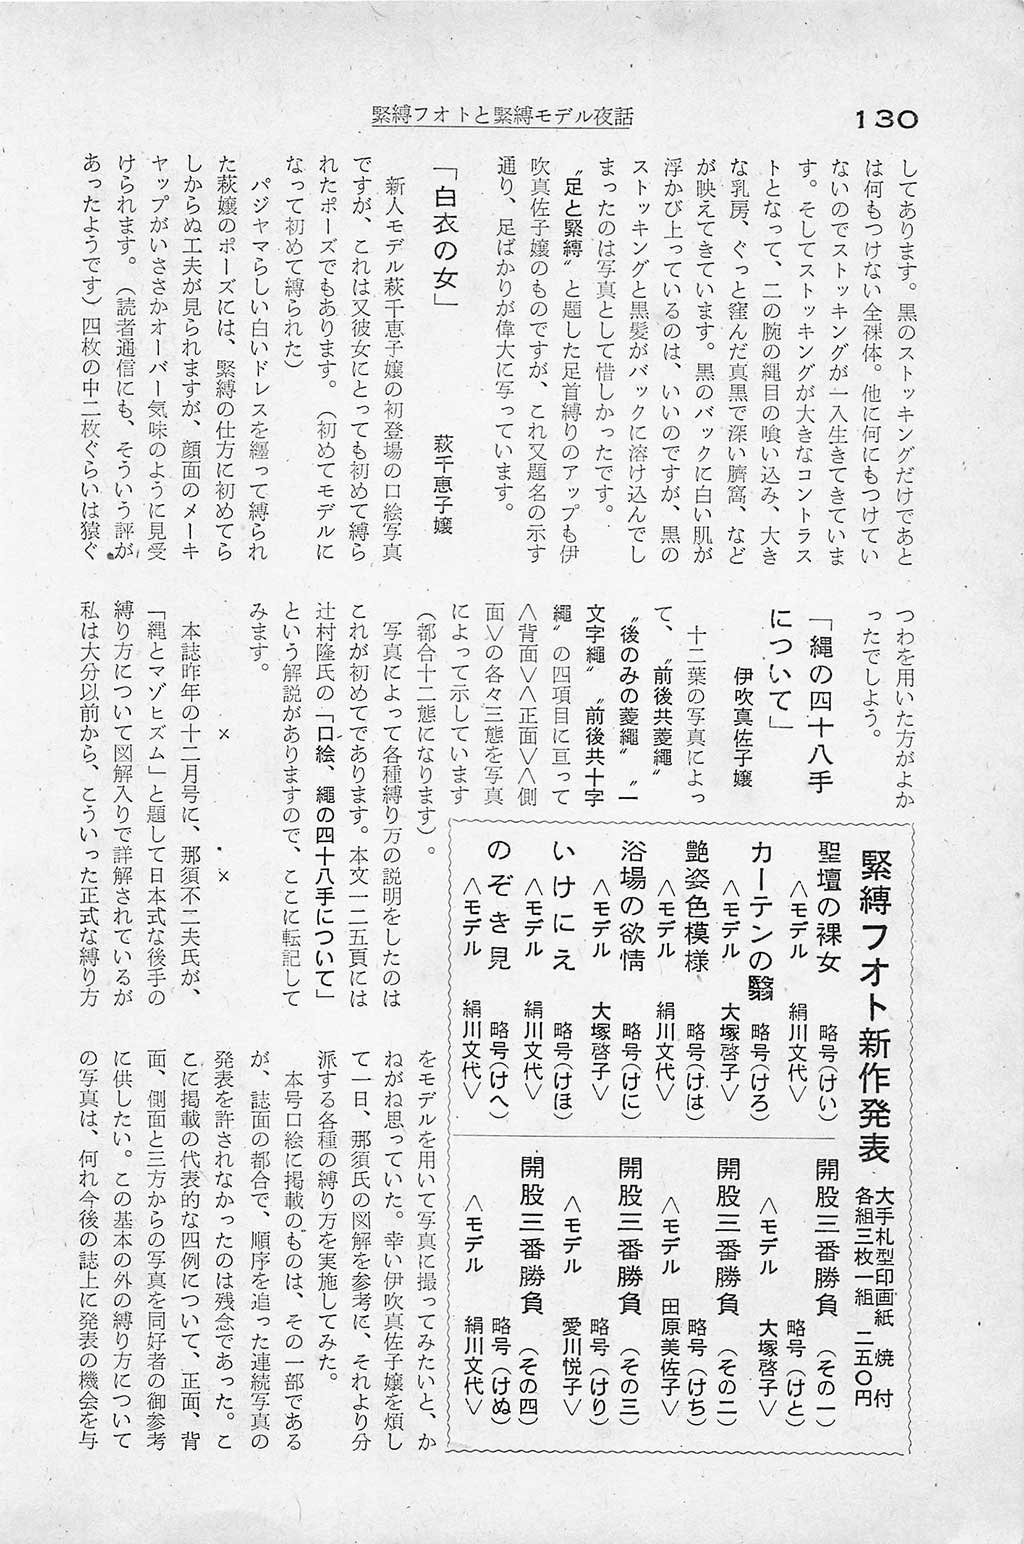 130
緊縛フオトと緊縛モデル夜話
してあります。黒のストッキングだけであと
は何もつけない全裸体。他に何にもつけてい
ないのでストッキングが一入生きてきていま
す。そしてストッキングが大きなコントラス
トとなって、二の腕の縄目の喰い込み、大き
な乳房、ぐっと窪んだ真黒で深い臍窩、など
が映えてきています。黒のバックに白い肌が
浮かび上っているのは、いいのですが、黒の
ストッキングと黒髪がバックに溶け込んでし
まったのは写真として惜しかったです。
〝足と緊縛〟と題した足首縛りのアップも伊
吹真佐子嬢のものですが、これ又題名の示す
通り、足ばかりが偉大に写っています。
「白衣の女」
萩千恵子嬢
新人モデル萩千恵子嬢の初登場の口絵写真
ですが、これは又彼女にとっても初めて縛ら
れたポーズでもあります。(初めてモデルに
なって初めて縛られた)
パジャマらしい白いドレスを纒って縛られ
た萩嬢のポーズには、緊縛の仕方に初めてら
しからぬ工夫が見られますが、顔面のメーキ
ャップがいささかオーバー気味のように見受
けられます。(読者通信にも、そういう評が
あったようです)四枚の中二枚ぐらいは猿ぐ
つわを用いた方がよか
ったでしよう。
「縄の四十八手
について」
伊吹真佐子嬢
十二葉の写真によっ
て、〝前後共菱縄〟
〝後のみの菱縄〟〝一
文字縄〟〝前後共十字
縄〟の四項目に亘って
<背面><正面><側
面>の各々三態を写真
によって示しています
(都合十二態になります)。
写真によって各種縛り万の説明をしたのは
これが初めてであります。本文一二五頁には
辻村隆氏の「口絵、縄の四十八手について」
という解説がありますので、ここに転記して
みます。
× ×
本誌昨年の十二月号に、那須不二夫氏が、
「縄とマゾヒズム」と題して日本式な後手の
縛り方について図解入りで詳解されているが
私は大分以前から、こういった正式な縛り方
をモデルを用いて写真に撮ってみたいと、か
ねがね思っていた。幸い伊吹真佐子嬢を煩し
て一日、那須氏の図解を参考に、それより分
派する各種の縛り方を実施してみた。
本号口絵に掲載のものは、その一部である
が、誌面の都合で、順序を追った連続写真の
発表を許されなかったのは残念であった。こ
こに掲載の代表的な四例について、正面、背
面、側面と三方からの写真を同好者の御参考
に供したい。この基本の外の縛り方について
の写真は、何れ今後の誌上に発表の機会を与
緊縛フオト新作発表
大手札型印画紙 焼付
各組三枚一組 二五〇円
聖壇の裸女 略号(けい)
<モデル 絹川文代>
カーテンの翳 略号(けろ)
<モデル 大塚啓子>
艶姿色模様 略号(けは)
<モデル 絹川文代>
浴場の欲情 略号(けに)
<モデル 大塚啓子>
いけにえ 略号(けほ)
<モデル 絹川文代>
のぞき見 略号(けへ)
<モデル 絹川文代>
開股三番勝負(その一)
略号(けと)
<モデル 大塚啓子>
開股三番勝負(その二)
略号(けち)
<モデル 田原美佐子>
開股三番勝負(その三)
略号(けり)
<モデル 愛川悦子>
開股三番勝負(その四)
略号(けぬ)
<モデル 絹川文代>